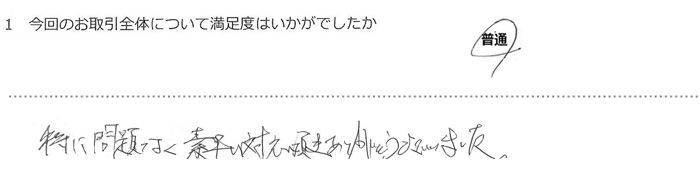 1 今回のお取引全体について満足度はいかがでしたか
普通
特に問題なく素早い対応頂きありがとうございました。